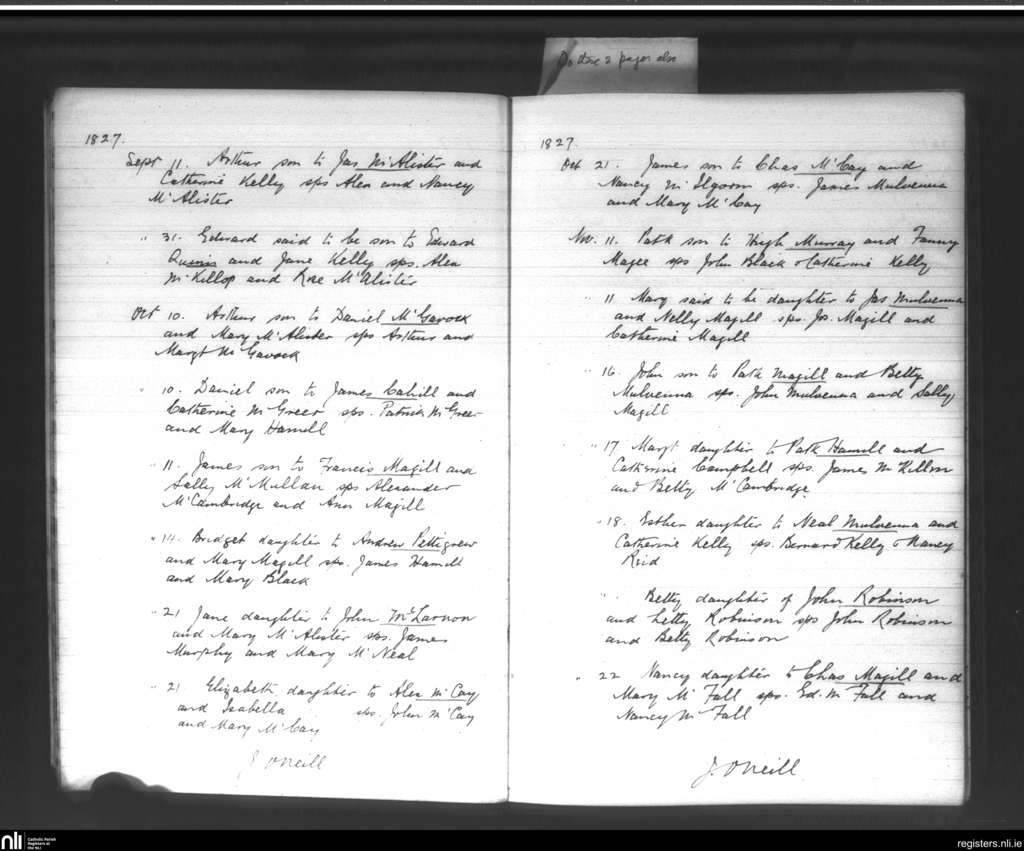 Do these 2 pages also
1827.
Sept 11. Arthur son to Jas McAlister and
Catherine Kelly sps Alex and Nancy
McAlister
" 31. Edward said to be son to Edward
Quinn and Jane Kelly sps. Alex
McKillop and Rose McAlister
Oct 10. Arthur son to Daniel McGavock
and Mary McAlister sps Arthur and
Margt McGavock
" 10. Daniel son to James Cahill and
Catherine McGreer sps. Patrick McGreer
and Mary Hamill
" 11. James son to Francis Magill and
Sally McMullan sps Alexander
McCambridge and Ann Magill
" 14. Bridget daughter to Andrew Pettigrew
and Mary Magill sps. James Hamill
and Mary Black
" 21 Jane daughter to John McLarnon
and Mary McAlister sps. James
Murphy and Mary McNeal
" 21. Elizabeth daughter to Alex McCay
and Isabella sps. John McCay
and Mary McCay
J O'Neill
1827.
Oct 21. James son to Chas McCay and
Nancy McIlgorm sps. James Mulvenna
and Mary McCay
Nov. 11. Patk son to Hugh Murray and Fanny
Magee sps John Black & Catherine Kelly
" 11. Mary said to be daughter to Jas Mulvenna
and Nelly Magill sps. Jos. Magill and
Catherine Magill
" 16. John son to Patk Magill and Betty
Mulvenna sps. John Mulvenna and Sally
Magill
" 17 Margt daughter to Patk Hamill and
Catherine Campbell sps. James McKillon
and Betty McCambridge
" 18. Esther daughter to Neal Mulvenna and
Catherine Kelly sps. Bernard Kelly & Nancy
Reid
" Betty daughter of John Robinson
and Letty Robinson sps John Robinson
and Betty Robinson
" 22 Nancy daughter to Chas Magill and
Mary McFall sps. Ed. McFall and
Nancy McFall
J. O'Neill
nli Catholic Parish
Registers at
the NLI
registers.nli.ie